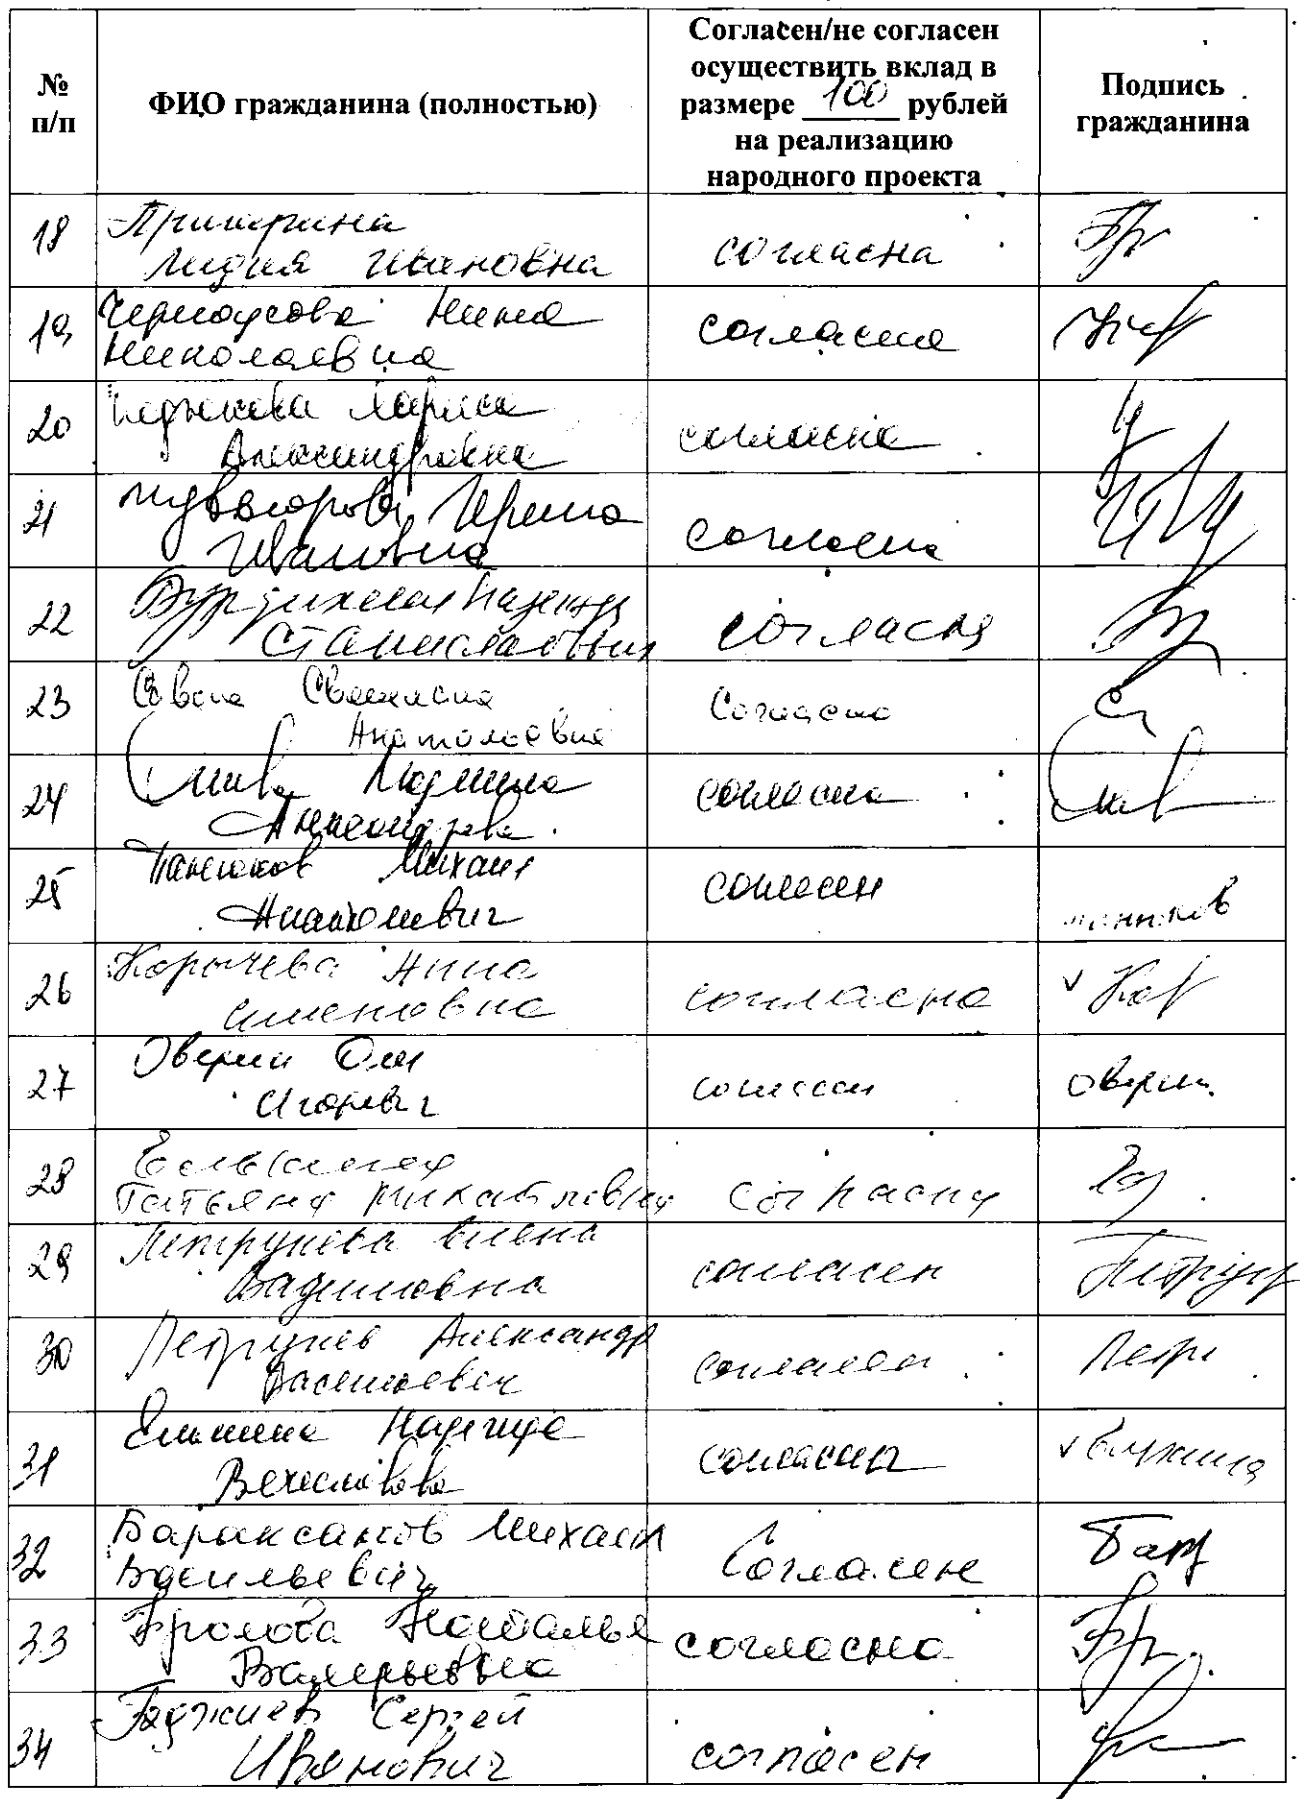 №
п/п
ФИО гражданина (полностью)
Согласен/не согласен
осуществить вклад в
размере 100 рублей
на реализацию
народного проекта
Подпись
гражданина
18
Лидия Ивановна
согласна
19
Черноусова Нина
Николаевна
согласна
20
Лариса
Александровна
согласна
21
Ирина
Ивановна
согласна
22
Надежда
Станиславовна
согласна
23
Светлана
Анатольевна
Согласна
24
Людмила
согласна
25
Панюков Михаил
Анатольевич
согласен
26
Корычева Анна
Семеновна
согласна
Кор
27
Оверин Олег
Игоревич
согласен
Оверин
28
Татьяна Михайловна
согласна
29
Петрунева Елена
Вадимовна
согласен
30
Петрунев Александр
Васильевич
согласен
Петр
31
Надежда
согласна
32
Бараксанов Михаил
Васильевич
Согласен
Бар
33
Фролова Наталья
Валерьевна
согласна
Фр.
34
Гаджиев Сергей
Иванович
согласен